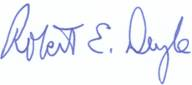 Robert E. Deyle